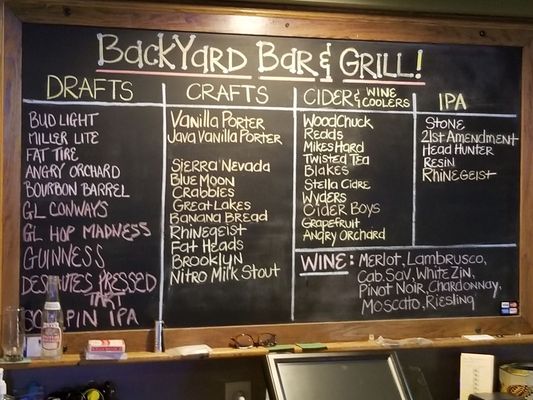 BackYard Bar & Grill!
DRAFTS
BUD LIGHT
MILLER LITE
FAT TIRE
ANGRY ORCHARD
BOURBON BARREL
GL CONWAYS
GL HOP MADNESS
GUINNESS
DESCHUTES PRESSED
TART
PIN IPA
CRAFTS
Vanilla Porter
Java Vanilla Porter
Sierra Nevada
Blue Moon
Crabbies
Great Lakes
Banana Bread
Rhinegeist
Fat Heads
Brooklyn
Nitro Milk Stout
CIDER & WINE COOLERS
WoodChuck
Redds
Mikes Hard
Twisted Tea
Blakes
Stella Cidre
Wyders
Cider Boys
Grapefruit
Angry Orchard
IPA
Stone
21st Amendment
Head Hunter
Resin
Rhinegeist
WINE: Merlot, Lambrusco,
Cab. Sav, White Zin,
Pinot Noir, Chardonnay,
Moscato, Riesling